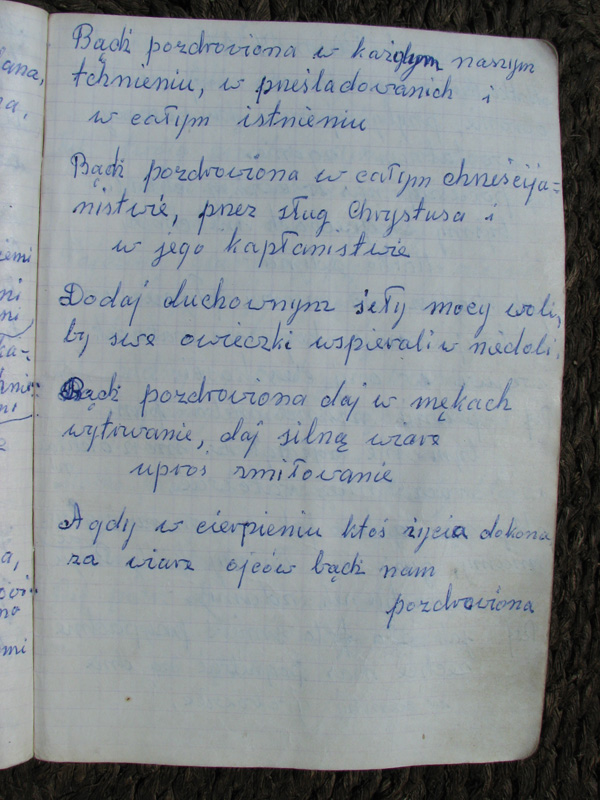 Bądź pozdrowiona w każdym naszym
tchnieniu, w prześladowanich i
w całym istnieniu
Bądź pozdrowiona w całym chrześcija-
nistwie, przez sług Chrystusa i
w jego kapłanistwie
Dodaj duchownym siły mocy woli,
by swe owieczki wspierali w niedoli.
Bądź pozdrowiona daj w mękach
wytrwanie, daj silną wiarę
uproś zmiłowanie
A gdy w cierpieniu ktoś życia dokona
za wiarę ojców bądź nam
pozdrowiona